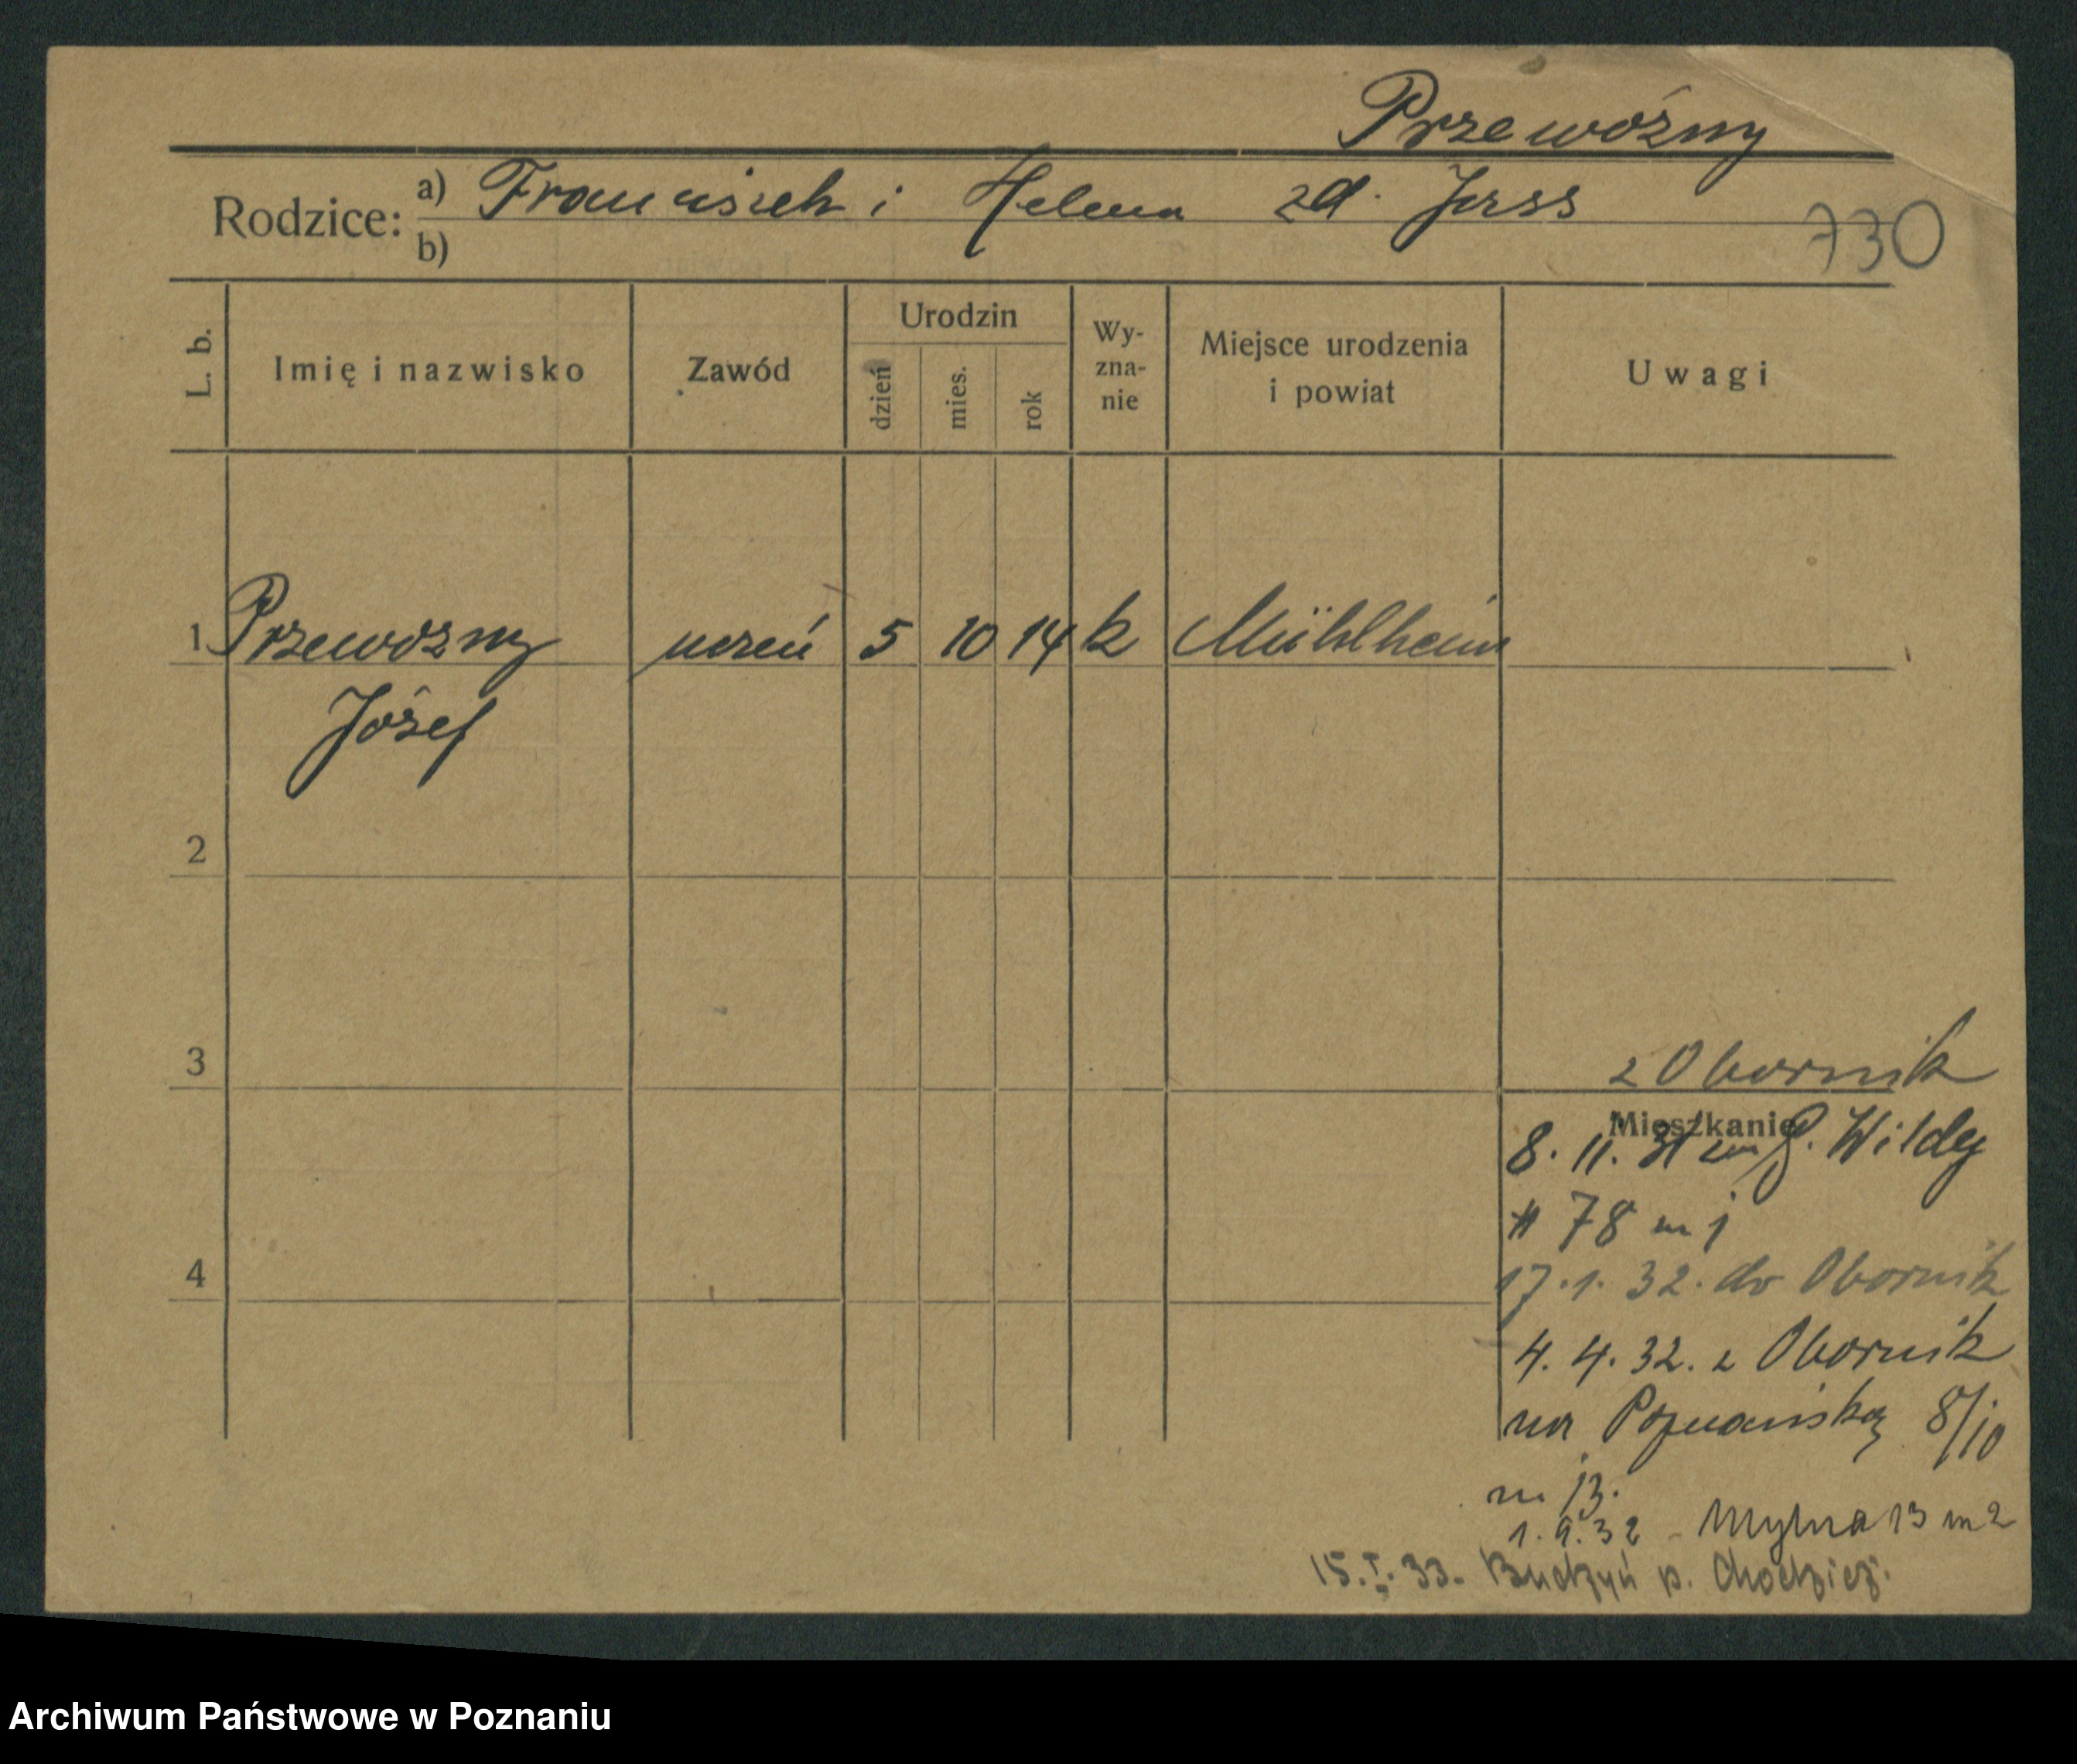 Przewóźny
Rodzice: a) Franciszek i Helena zd. Jerss
b)
730
L. b.
Imię i nazwisko
Zawód
Urodzin
dzień
mies.
rok
Wy-
zna-
nie
Miejsce urodzenia
i powiat
Uwagi
1 Przewoźny uczeń 5 10 14 k Mühlheim
Józef
2
3
z Obornik
Mieszkanie
8. 11. 31 G. Wildy
78 m 1
17.1. 32. do Obornik
4. 4. 32. z Obornik
na Poznańską 8/10
m. 13.
1. 9. 32 - Mylna 13 m 2
4
15. I. 33. Budzyń p. Chodzież.
Archiwum Państwowe w Poznaniu